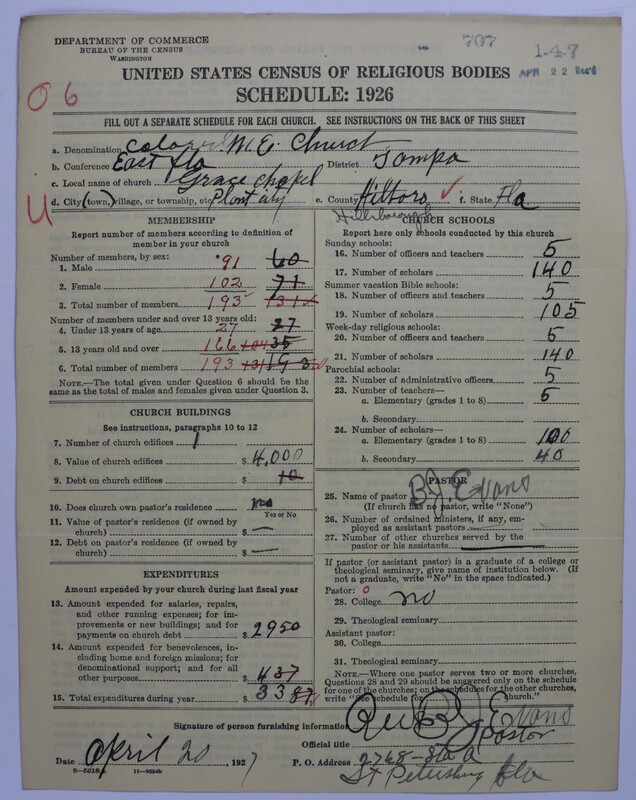 DEPARTMENT OF COMMERCE
BUREAU OF THE CENSUS
WASHINGTON
707
1-47
APR 22 Rec'd
UNITED STATES CENSUS OF RELIGIOUS BODIES
SCHEDULE: 1926
06
FILL OUT A SEPARATE SCHEDULE FOR EACH CHURCH. SEE INSTRUCTIONS ON THE BACK OF THIS SHEET
a. Denomination Colored M.E. Church
b. Conference East Fla District Tampa
c. Local name of church Grace Chapel
d. City (town,) village, or township, etc. Plant City e. County Hillboro ✓ f. State Fla
Hillsborough
MEMBERSHIP
Report number of members according to definition of
member in your church
Number of members, by sex:
1. Male 91 60
2. Female 102 71
3. Total number of members 193 131
Number of members under and over 13 years old:
4. Under 13 years of age 27 27
5. 13 years old and over 166 104 35
6. Total number of members 193 131 193
NOTE.—The total given under Question 6 should be
same as the total of males and females given under Question 3.
CHURCH BUILDINGS
See instructions, paragraphs 10 to 12
7. Number of church edifices 1
8. Value of church edifices $ 4,000
9. Debt on church edifices $ 10
10. Does church own pastor's residence no
Yes or No
11. Value of pastor's residence (if owned by
church) $ —
12. Debt on pastor's residence (if owned by
church) $ —
EXPENDITURES
Amount expended by your church during last fiscal year
13. Amount expended for salaries, repairs,
and other running expenses; for im-
provements or new buildings; and for
payments on church debt $ 2950
14. Amount expended for benevolences, in-
cluding home and foreign missions; for
denominational support; and for all
other purposes $ 437
15. Total expenditures during year $ 3387
CHURCH SCHOOLS
Report here only schools conducted by this church
Sunday schools:
16. Number of officers and teachers 5
17. Number of scholars 140
Summer vacation Bible schools:
18. Number of officers and teachers 5
19. Number of scholars 105
Week-day religious schools:
20. Number of officers and teachers 5
21. Number of scholars 140
Parochial schools:
22. Number of administrative officers 5
23. Number of teachers—
a. Elementary (grades 1 to 8) 5
b. Secondary
24. Number of scholars—
a. Elementary (grades 1 to 8) 100
b. Secondary 40
PASTOR
25. Name of pastor B J Evans
(If church has no pastor, write "None")
26. Number of ordained ministers, if any, em-
ployed as assistant pastors
27. Number of other churches served by the
pastor or his assistants
If pastor (or assistant pastor) is a graduate of a college or
theological seminary, give name of institution below. (If
not a graduate, write "No" in the space indicated.)
Pastor: 0
28. College no
29. Theological seminary
Assistant pastor:
30. College
31. Theological seminary
NOTE.—Where one pastor serves two or more churches,
Questions 28 and 29 should be answered only on the schedule
for one of the churches; on the schedules for the other churches,
write "See schedule for church."
Signature of person furnishing information Rev B J Evans
Official title Pastor
Date April 20, 1927 P. O. Address 2768-5th a
St Petersburg Fla
8-5518a 11-9024b